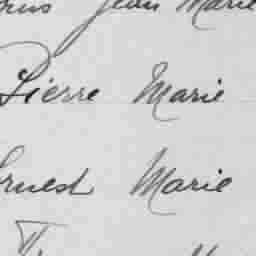 Jean Marie
Pierre Marie
Ernest Marie